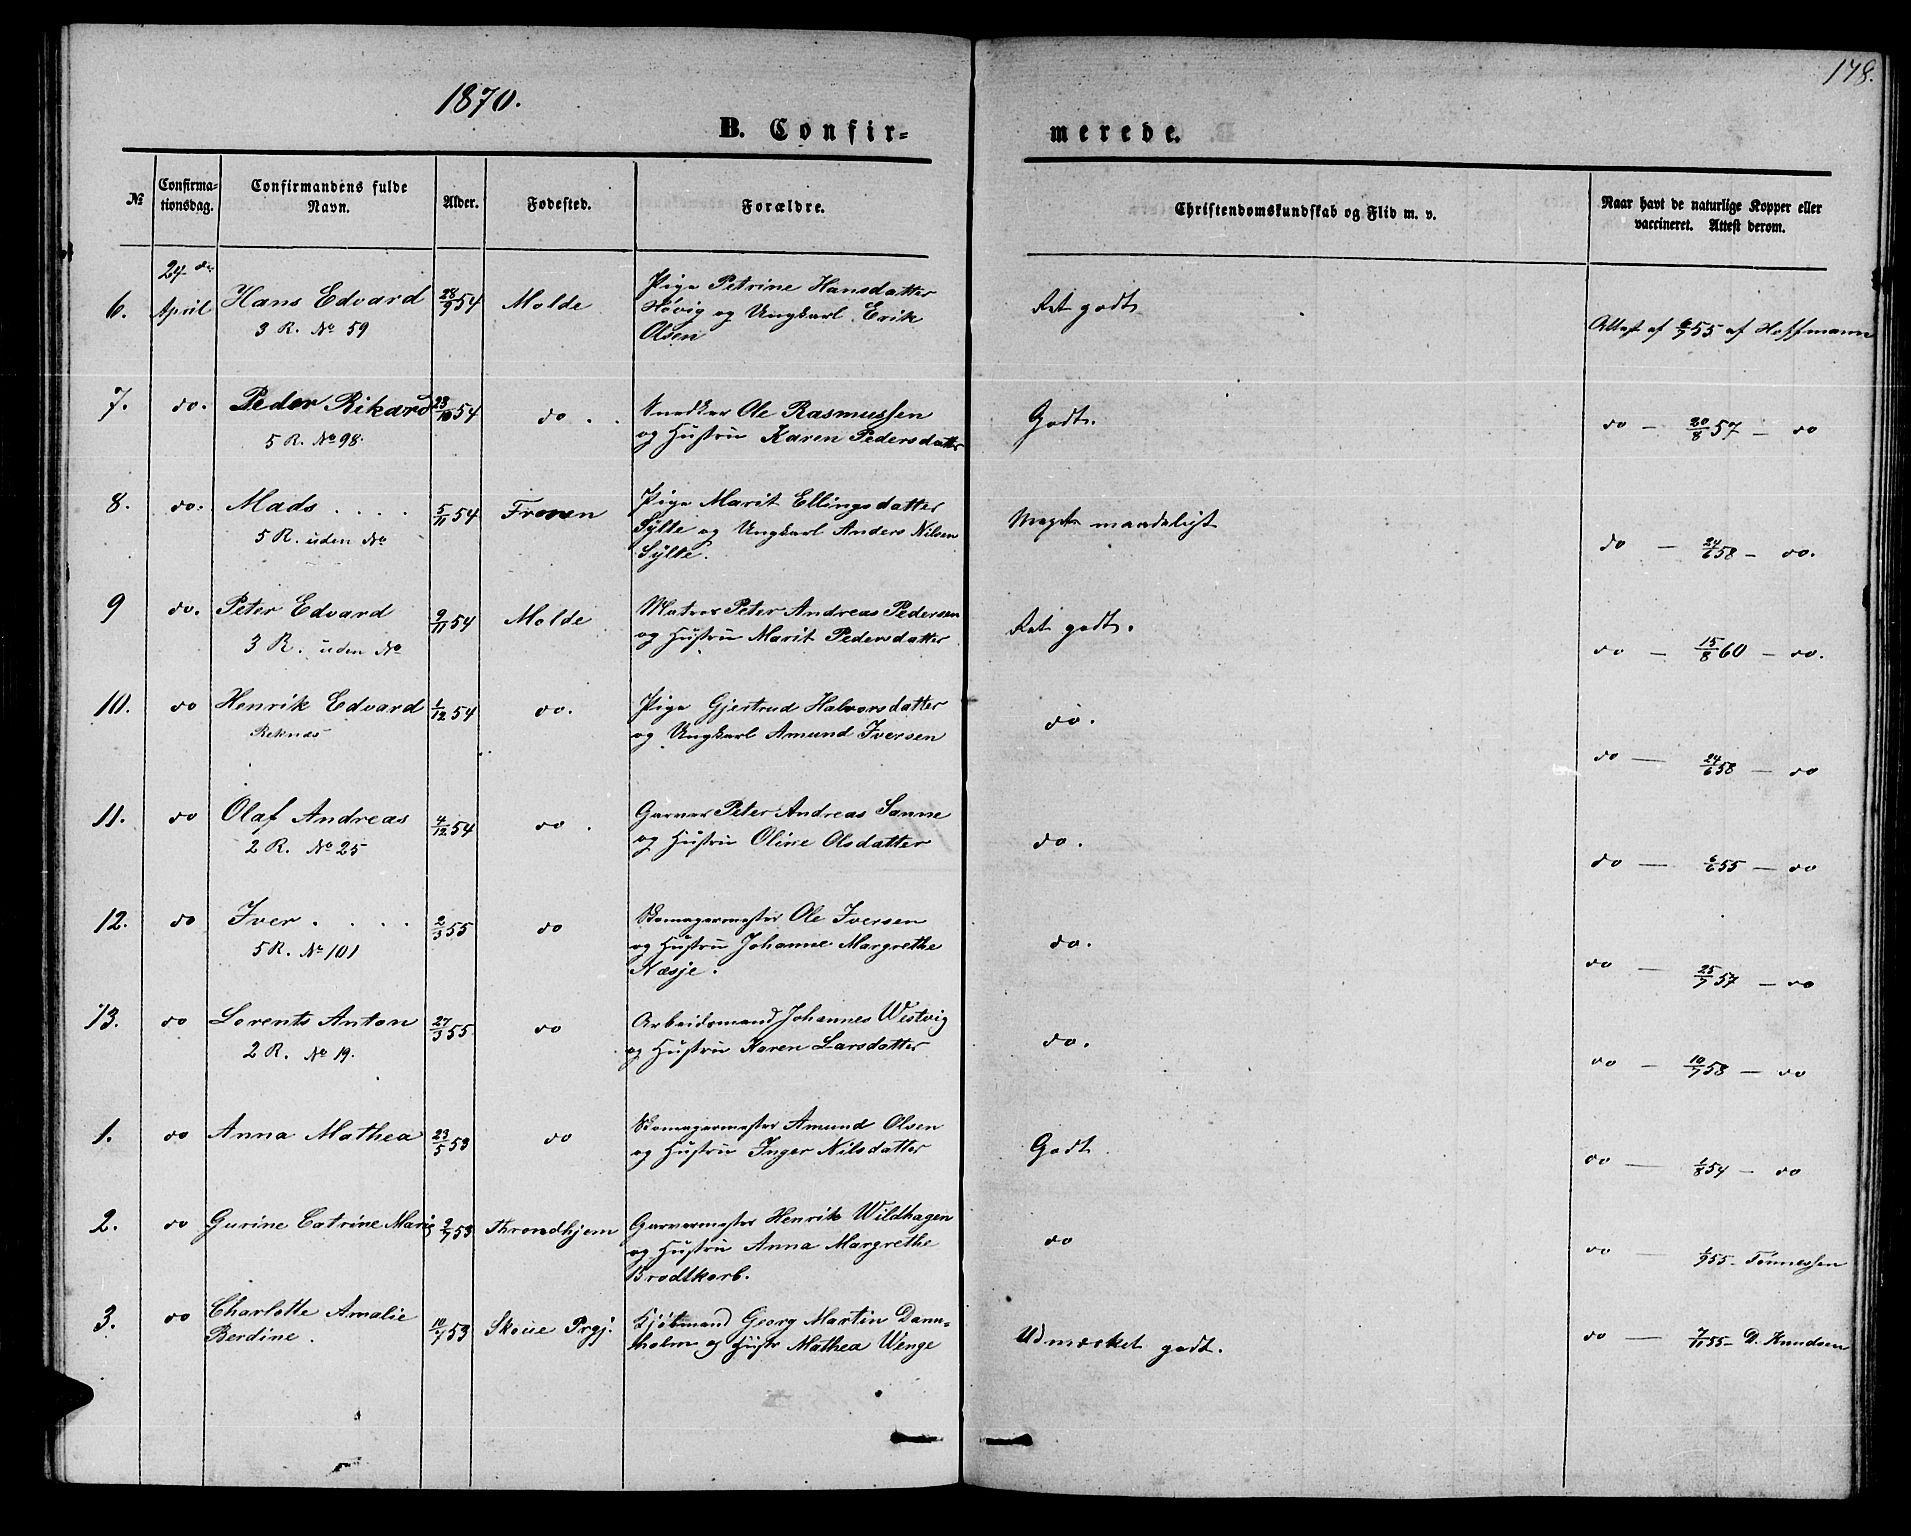 1870.
178.
B. Confir-
merede.
No
Confirma-
tionsdag.
Confirmandens fulde
Navn.
Alder.
Fødested.
Forældre.
Christendomskundskab og Flid m. v.
Naar havt de naturlige Kopper eller
vaccineret. Attest derom.
24de
6. April Hans Edvard 28/9 54 Molde Pige Petrine Hansdatter
Høvig og Ungkarl Erik
Olsen
3 R. No 59
Ret godt
Attest af 6/7 55 af Hoffmann
7. do. Peder Rikard 23/10 54 do. Snedker Ole Rasmussen
5 R. No 98. og Hustru Karen Pedersdatter
Godt.
do — 20/8 57 — do
8. do. Mads 5/11 54 Fronen Pige Marit Ellingsdatter
5 R. uden No Sylte og Ungkarl Anders Nilsen
Sylte.
Meget maadeligt
do — 24/6 58 — do.
9 do. Peter Edvard 9/11 54 Molde Matros Peter Andreas Pedersen
3 R. uden No og Hustru Marit Pedersdatter
Ret godt.
do — 15/8 60 — do.
10. do Henrik Edvard 1/12 54 do. Pige Gjertrud Halvorsdatter
Reknæs og Ungkarl Amund Iversen
do.
do — 24/6 58 — do
11. do Olaf Andreas 4/12 54 do. Garver Peter Andreas Sanne
2 R. No 25 og Hustru Oline Olsdatter
do.
do — 6/6 55 — do
12. do Iver 2/3 55 do Skomagermester Ole Iversen
5 R. No 101 og Hustru Johanne Margrethe
Næsje.
do.
do — 25/7 57 — do
13. do Lorents Anton 27/3 55 do Arbeidsmand Johannes Westvig
2 R. No 19. og Hustru Karen Larsdatter
do.
do — 10/7 58 — do
1. do Anna Mathea 23/5 53 do Skomagermester Amund Olsen
og Hustru Inger Nilsdatter
Godt.
do — 1/8 54 — do
2. do Gurine Catrine Marie 2/7 53 Throndhjem Garvermester Henrik Wildhagen
og Hustru Anna Margrethe
Brodtkorb.
do
do — 1/9 55 — Tønnessen
3. do Charlotte Amalie 10/7 53 Skoue Prgj. Kjøbmand Georg Martin Dann-
Berdine. holm og Hustr Mathea Wenge
Udmærket godt.
do — 7/11 55 — D. Knudsen